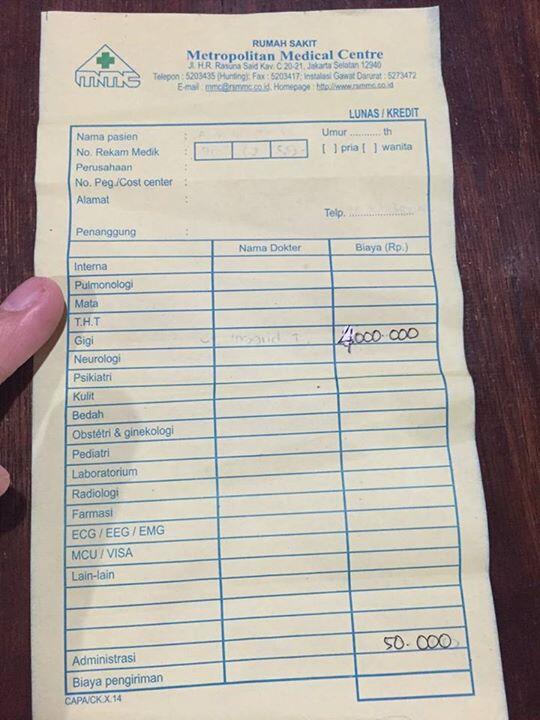 mmc
RUMAH SAKIT
Metropolitan Medical Centre
Jl. H.R. Rasuna Said Kav. C 20-21, Jakarta Selatan 12940
Telepon : 5203435 (Hunting); Fax : 5203417; Instalasi Gawat Darurat : 5273472
E-mail : mmc@rsmmc.co.id, Homepage : http://www.rsmmc.co.id
LUNAS / KREDIT
Nama pasien : Umur ........... th
No. Rekam Medik : [ ] pria [ ] wanita
Perusahaan :
No. Peg./Cost center :
Alamat :
Telp. ........................
Penanggung :
Nama Dokter Biaya (Rp.)
Interna
Pulmonologi
Mata
T.H.T
Gigi 4000.000
Neurologi
Psikiatri
Kulit
Bedah
Obstétri & ginekologi
Pediatri
Laboratorium
Radiologi
Farmasi
ECG / EEG / EMG
MCU / VISA
Lain-lain
Administrasi 50.000
Biaya pengiriman
CAPA/CK.X.14